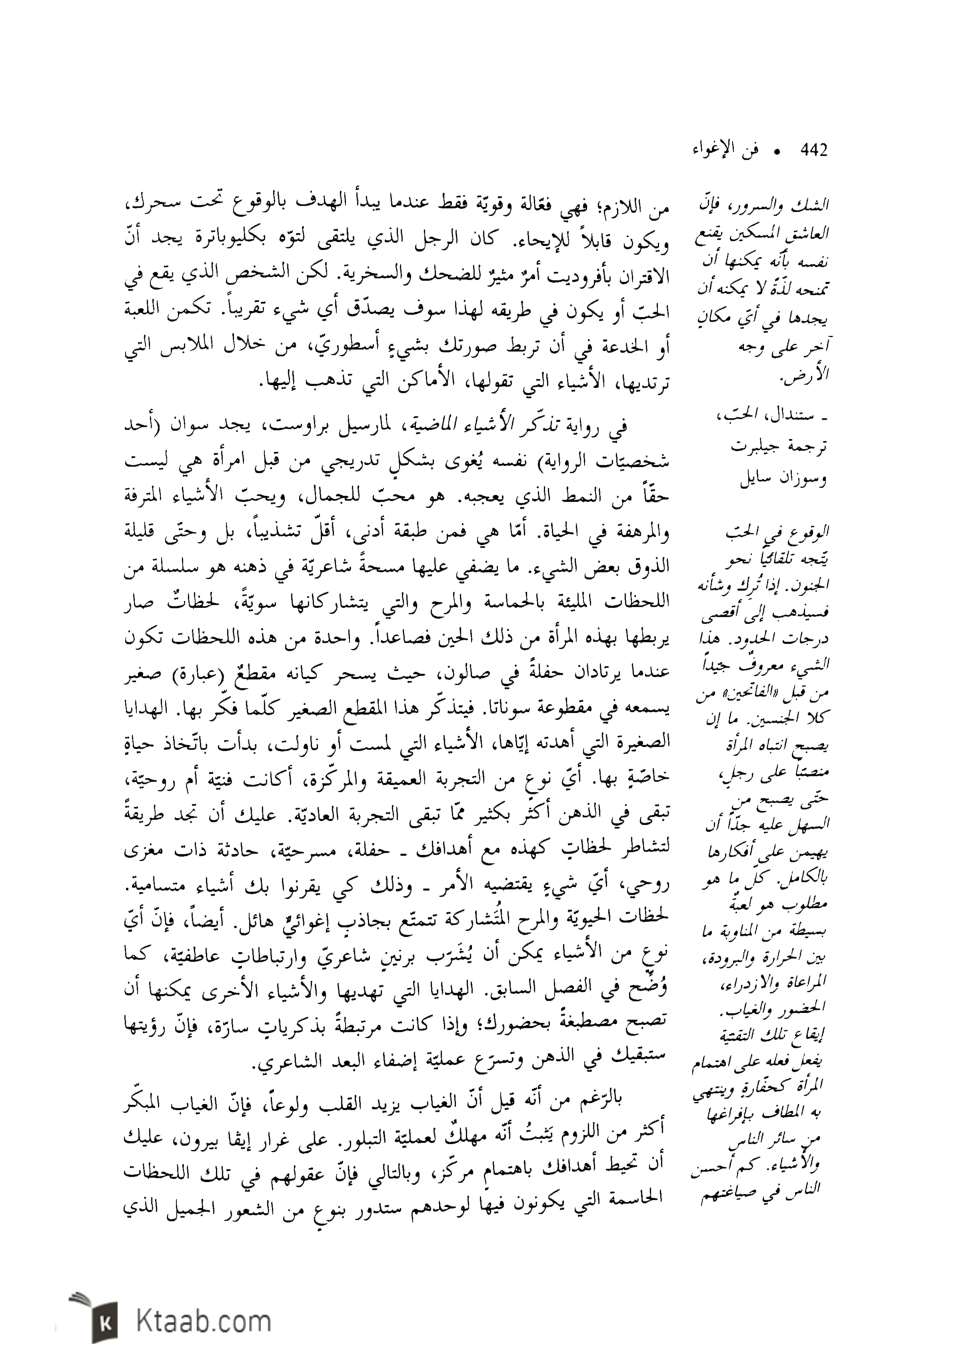 442 • فن الإغواء
الشك والسرور، فإنّ
العاشق المسكين يقنع
نفسه بأنّه يمكنها أن
تمنحه لذّةً لا يمكنه أن
يجدها في أيّ مكانٍ
آخر على وجه
الأرض.
ـ ستندال، الحبّ،
ترجمة جيلبرت
وسوزان سايل
الوقوع في الحبّ
يتّجه تلقائيّاً نحو
الجنون. إذا تُرِك وشأنه
فسيذهب إلى أقصى
درجات الحدود. هذا
الشيء معروفٌ جيّداً
من قبل «الفاتحين» من
كلا الجنسين. ما إن
يصبح انتباه المرأة
منصبّاً على رجلٍ،
حتّى يصبح من
السهل عليه جدّاً أن
يهيمن على أفكارها
بالكامل. كلّ ما هو
مطلوب هو لعبةٌ
بسيطة من المناوبة ما
بين الحرارة والبرودة،
المراعاة والازدراء،
الحضور والغياب.
إيقاع تلك التقنية
يفعل فعله على اهتمام
المرأة كحفّارةٍ وينتهي
به المطاف بإفراغها
من سائر الناس
والأشياء. كم أحسن
الناس في صياغتهم
من اللازم؛ فهي فعّالة وقويّة فقط عندما يبدأ الهدف بالوقوع تحت سحرك،
ويكون قابلاً للإيحاء. كان الرجل الذي يلتقى لتوّه بكليوباترة يجد أنّ
الاقتران بأفروديت أمرٌ مثيرٌ للضحك والسخرية. لكن الشخص الذي يقع في
الحبّ أو يكون في طريقه لهذا سوف يصدّق أي شيء تقريباً. تكمن اللعبة
أو الخدعة في أن تربط صورتك بشيءٍ أسطوريّ، من خلال الملابس التي
ترتديها، الأشياء التي تقولها، الأماكن التي تذهب إليها.
في رواية تذكّر الأشياء الماضية، لمارسيل براوست، يجد سوان (أحد
شخصيّات الرواية) نفسه يُغوى بشكلٍ تدريجي من قبل امرأة هي ليست
حقّاً من النمط الذي يعجبه. هو محبّ للجمال، ويحبّ الأشياء المترفة
والمرهفة في الحياة. أمّا هي فمن طبقة أدنى، أقلّ تشذيباً، بل وحتّى قليلة
الذوق بعض الشيء. ما يضفي عليها مسحةً شاعريّة في ذهنه هو سلسلة من
اللحظات المليئة بالحماسة والمرح والتي يتشاركانها سويّةً، لحظاتٌ صار
يربطها بهذه المرأة من ذلك الحين فصاعداً. واحدة من هذه اللحظات تكون
عندما يرتادان حفلةً في صالون، حيث يسحر كيانه مقطعٌ (عبارة) صغير
يسمعه في مقطوعة سوناتا. فيتذكّر هذا المقطع الصغير كلّما فكّر بها. الهدايا
الصغيرة التي أهدته إيّاها، الأشياء التي لمست أو ناولت، بدأت باتّخاذ حياةٍ
خاصّةٍ بها. أيّ نوعٍ من التجربة العميقة والمركّزة، أكانت فنيّة أم روحيّة،
تبقى في الذهن أكثر بكثير ممّا تبقى التجربة العاديّة. عليك أن تجد طريقةً
لتشاطر لحظاتٍ كهذه مع أهدافك ـ حفلة، مسرحيّة، حادثة ذات مغزى
روحي، أيّ شيءٍ يقتضيه الأمر ـ وذلك كي يقرنوا بك أشياء متسامية.
لحظات الحيويّة والمرح المُتشاركة تتمتّع بجاذبٍ إغوائيٍّ هائل. أيضاً، فإنّ أيّ
نوعٍ من الأشياء يمكن أن يُشَرّب برنينٍ شاعريّ وارتباطاتٍ عاطفيّة، كما
وُضّح في الفصل السابق. الهدايا التي تهديها والأشياء الأخرى يمكنها أن
تصبح مصطبغةً بحضورك؛ وإذا كانت مرتبطةً بذكرياتٍ سارّة، فإنّ رؤيتها
ستبقيك في الذهن وتسرّع عمليّة إضفاء البعد الشاعري.
بالرّغم من أنّه قيل أنّ الغياب يزيد القلب ولوعاً، فإنّ الغياب المبكّر
أكثر من اللزوم يَثبتُ أنّه مهلكٌ لعمليّة التبلور. على غرار إيڤا بيرون، عليك
أن تحيط أهدافك باهتمامٍ مركّز، وبالتالي فإنّ عقولهم في تلك اللحظات
الحاسمة التي يكونون فيها لوحدهم ستدور بنوعٍ من الشعور الجميل الذي
Ktaab.com